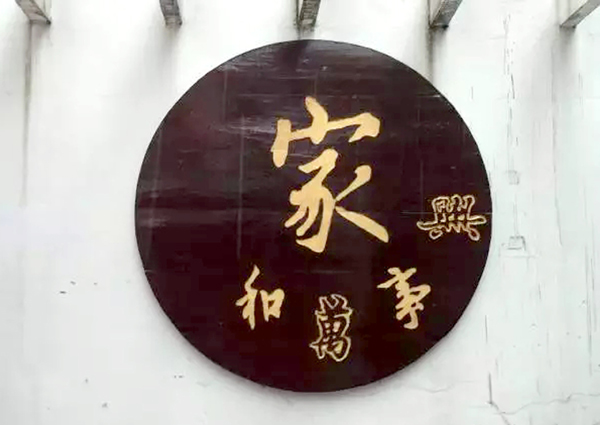 家
和
萬
事
興